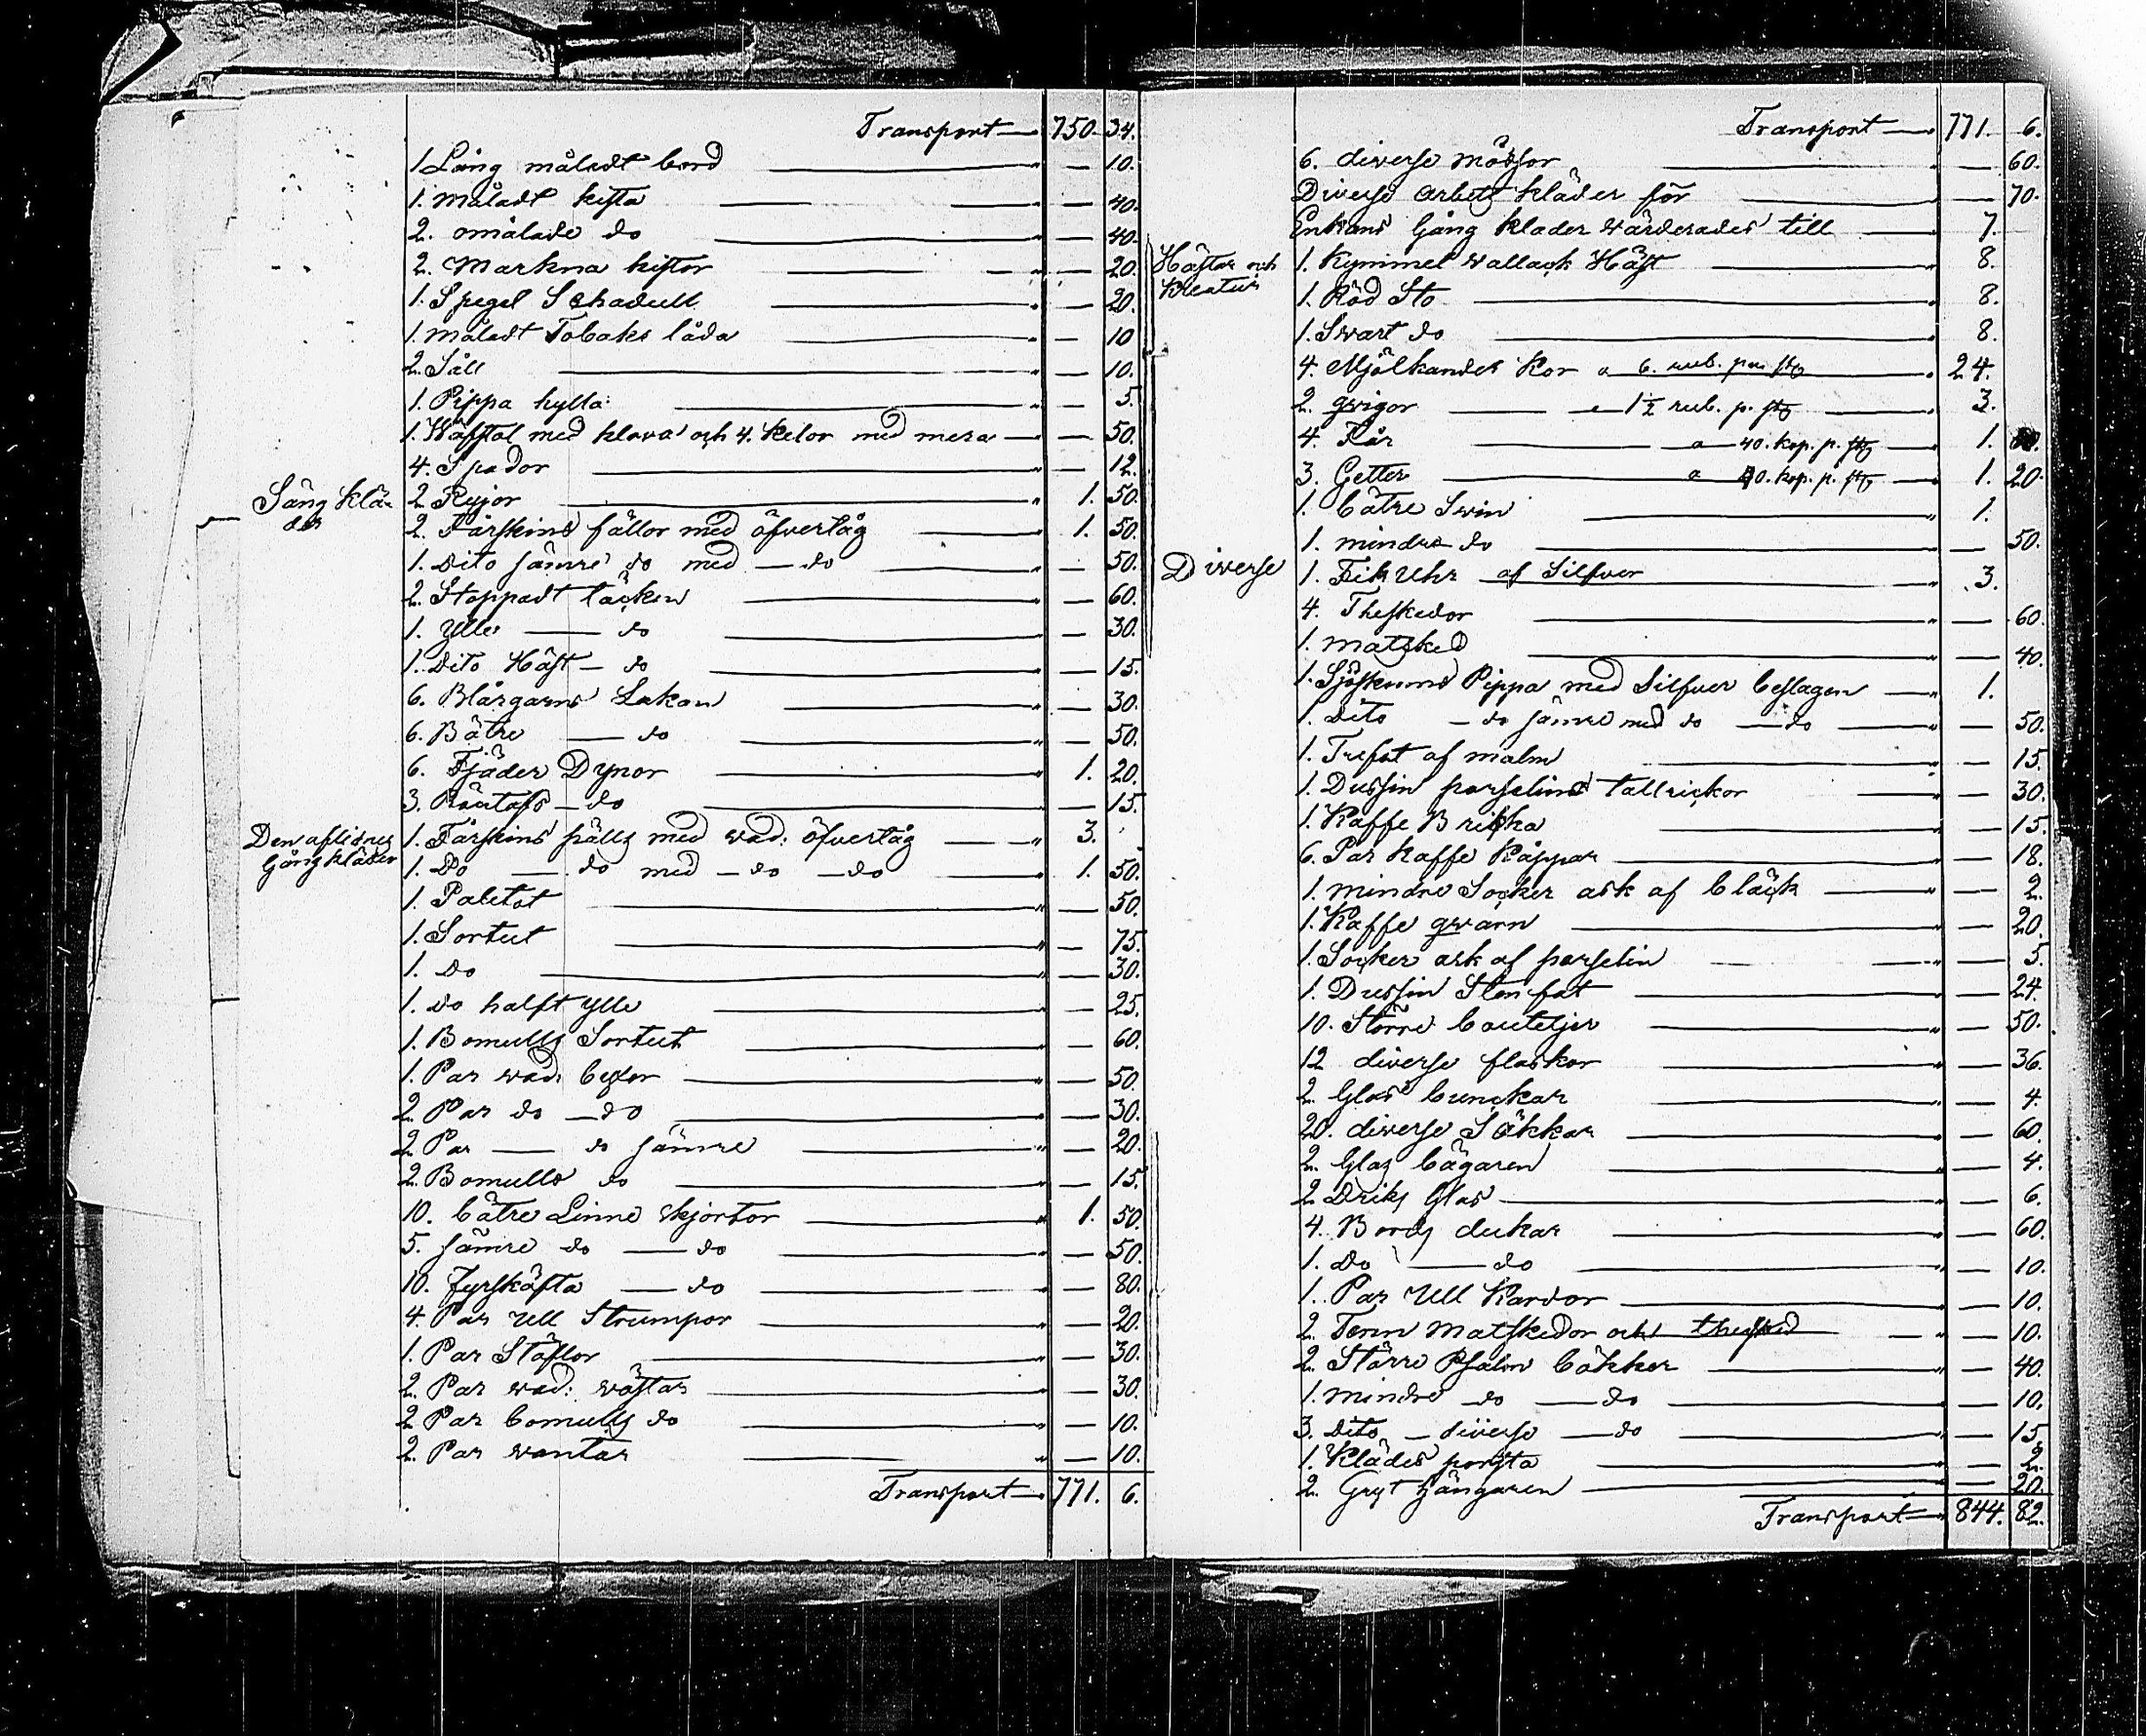 Transport — 750. 34.
1 Lång måladt bord — 10.
1. måladt kista — 40.
2. omålade do — 40.
2. Markna kistor — 20.
1. Spegel Schadull — 20.
1. måladt Tobaks låda — 10
2. Såll — 10.
1. Pippa hylla: — 5.
1. Wäfstol med klova och 4. Kelor med mera — 50.
4. Spador — 12.
Säng klä-
der
2 Ryjor 1. 50.
2. Fårskins fällor med öfvertåg 1. 50.
1. Dito sämre do med — do — 50.
2. Stoppadt täcken — 60.
1. Ylle — do — 30.
1. Dito Häst — do — 15.
6. Blårgarns Lakan — 30.
6. Bätre — do — 50.
6. Fjäder Dynor 1. 20.
3. Råntåfs — do — 15.
Den aflidnes
Gång kläder
1. Fårskins pälls med vad: öfvertåg — 3.
1. Do — do med — do — do 1. 50.
1. Paletot — 50.
1. Sortut — 75.
1. Do — 30.
1. do halft ylle — 25.
1. Bomulls Sortut — 60.
1. Par vad: byxor — 50.
2. Par do — do — 30.
2 Par — do sämre — 20.
2. Bomulls do — 15.
10. bätre Linne skjortor 1. 50.
5. sämre do — do — 50.
10. fyrskäfta — do — 80.
4. Par Ull Strumpor — 20.
1. Par Stöflor — 30.
2. Par vad: västar — 30.
2 Par bomulls do — 10.
2. Par vantar — 10.
Transport — 771. 6.
Transport — 771. 6.
6. diverse mössor — 60.
Diverse arbets kläder för — 70.
Enkans Gång klader värderades till 7.
Hästar och
Kreatur
1. Kymmel vallack Häst 8.
1. Röd Sto 8.
1. Svart do 8.
4. Mjölkandes Kor a 6. rub. per stÿ 24.
2. qvigor — a 1½ rub. p. stÿ 3.
4. Får — a 40. kop. p. stÿ 1. 60.
3. Getter — a 40. kop. p. stÿ 1. 20.
1. bätre Svin 1.
1. mindre do — 50.
Diverse
1. Fik Uhr af Silfver 3.
4. Theskedor — 60.
1. matsked — 40.
1. Sjöskums Pippa med Silfver beslagen 1.
1. Dito — do sämre med do — do — 50.
1. Trefot af malm — 15.
1. Dussin porselins tallrickor — 30.
1. Kaffe Bricka — 15.
6. Par Kaffe Koppar — 18.
1. mindre Socker ask af bläck — 2.
1. Kaffe qvarn — 20.
1. Socker ask af porselin — 5.
1. Dussin Sten fat — 24.
10. Större bouteljer — 50.
12 diverse flaskor — 36.
2. Glas bunckar — 4.
20. diverse Säkkar — 60.
2. Glas bägaren — 4.
2. Driks Glas — 6.
4. Bords dukar — 60.
1. Do — do — 10.
1. Par Ull Kardor — 10.
2. Tenn Matskedor och thesked — 10.
2. Större Psalm bökker — 40.
1. mindre do — do — 10.
3. dito — diverse — do — 15
1. Klädes porsta — 2.
2. Gryt hängaren — 20.
Transport — 844. 82.